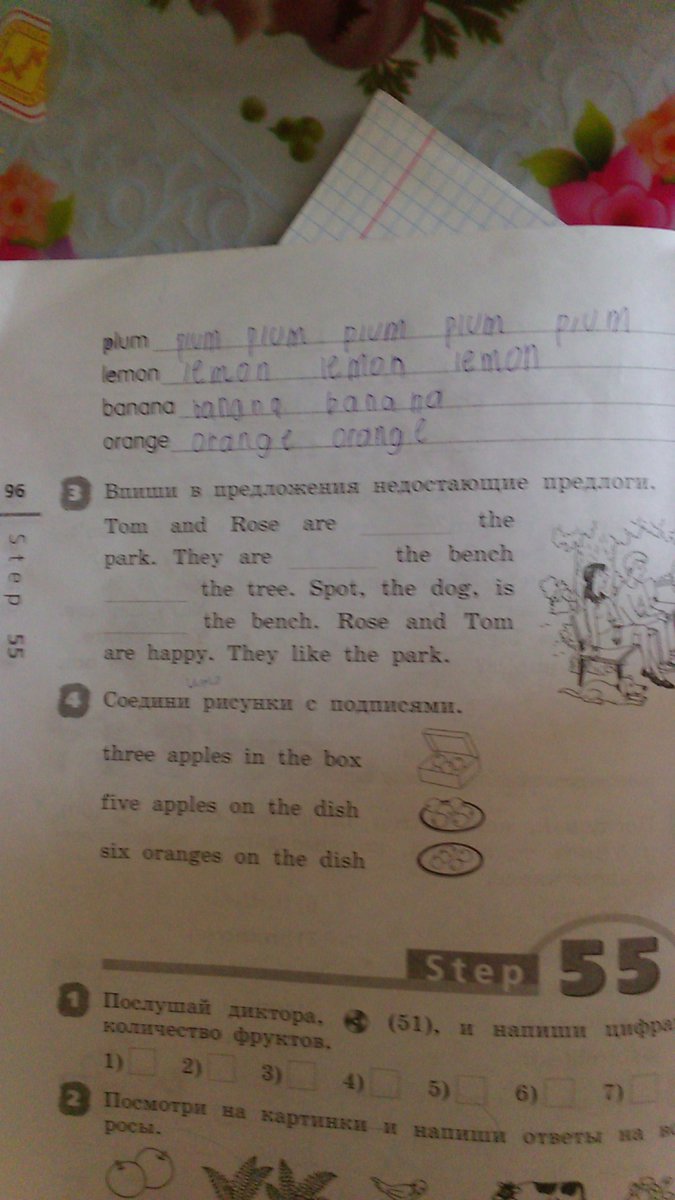 plum plum plum plum plum plum
lemon lemon lemon lemon
banana banana banana
orange orange orange
96
Step 55
3 Впиши в предложения недостающие предлоги.
Tom and Rose are ______ the
park. They are ______ the bench
______ the tree. Spot, the dog, is
______ the bench. Rose and Tom
are happy. They like the park.
4 Соедини рисунки с подписями.
three apples in the box
five apples on the dish
six oranges on the dish
Step 55
1 Послушай диктора, (51), и напиши
количество фруктов.
1) 2) 3) 4) 5) 6) 7)
2 Посмотри на картинки и напиши ответы на
росы.